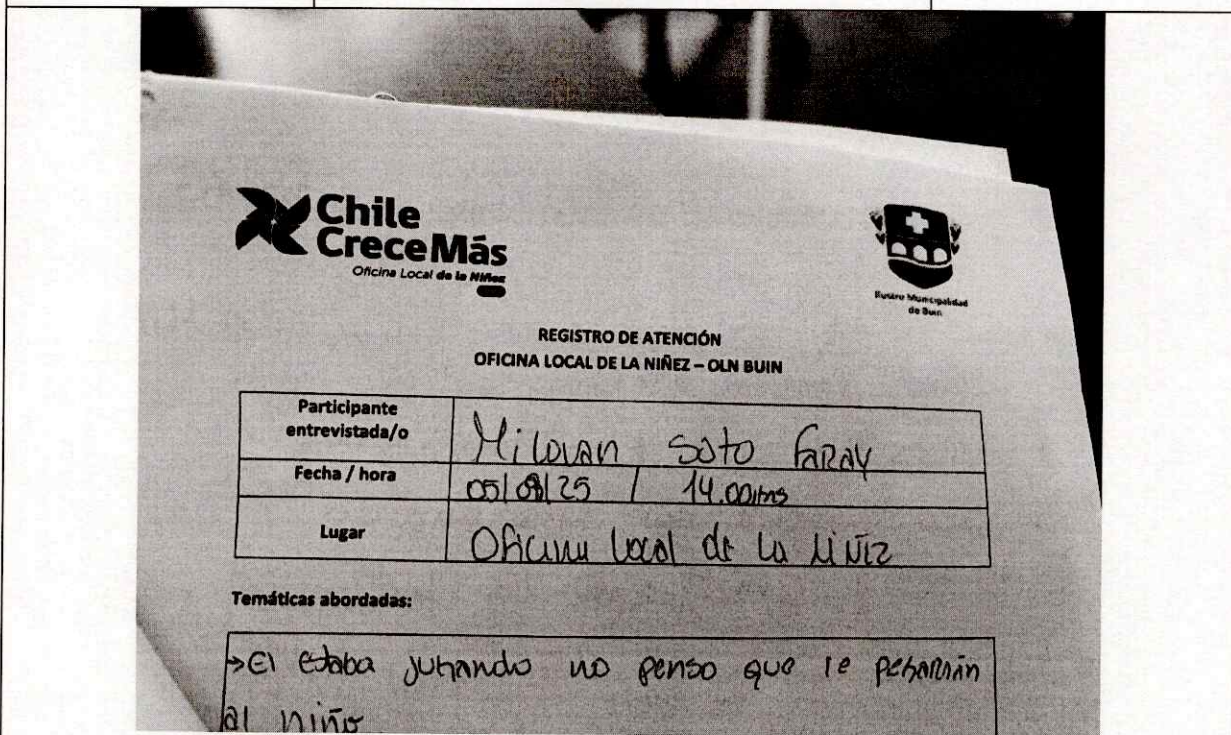 Chile
CreceMás
Oficina Local de la Niñez
Ilustre Municipalidad
de Buin
REGISTRO DE ATENCIÓN
OFICINA LOCAL DE LA NIÑEZ – OLN BUIN
Participante
entrevistada/o
Milovan Soto Faray
Fecha / hora
05/08/25 / 14.00hrs
Lugar
Oficina Local de la Niñez
Temáticas abordadas:
→El estaba jugando no penso que le pegarian
al niño